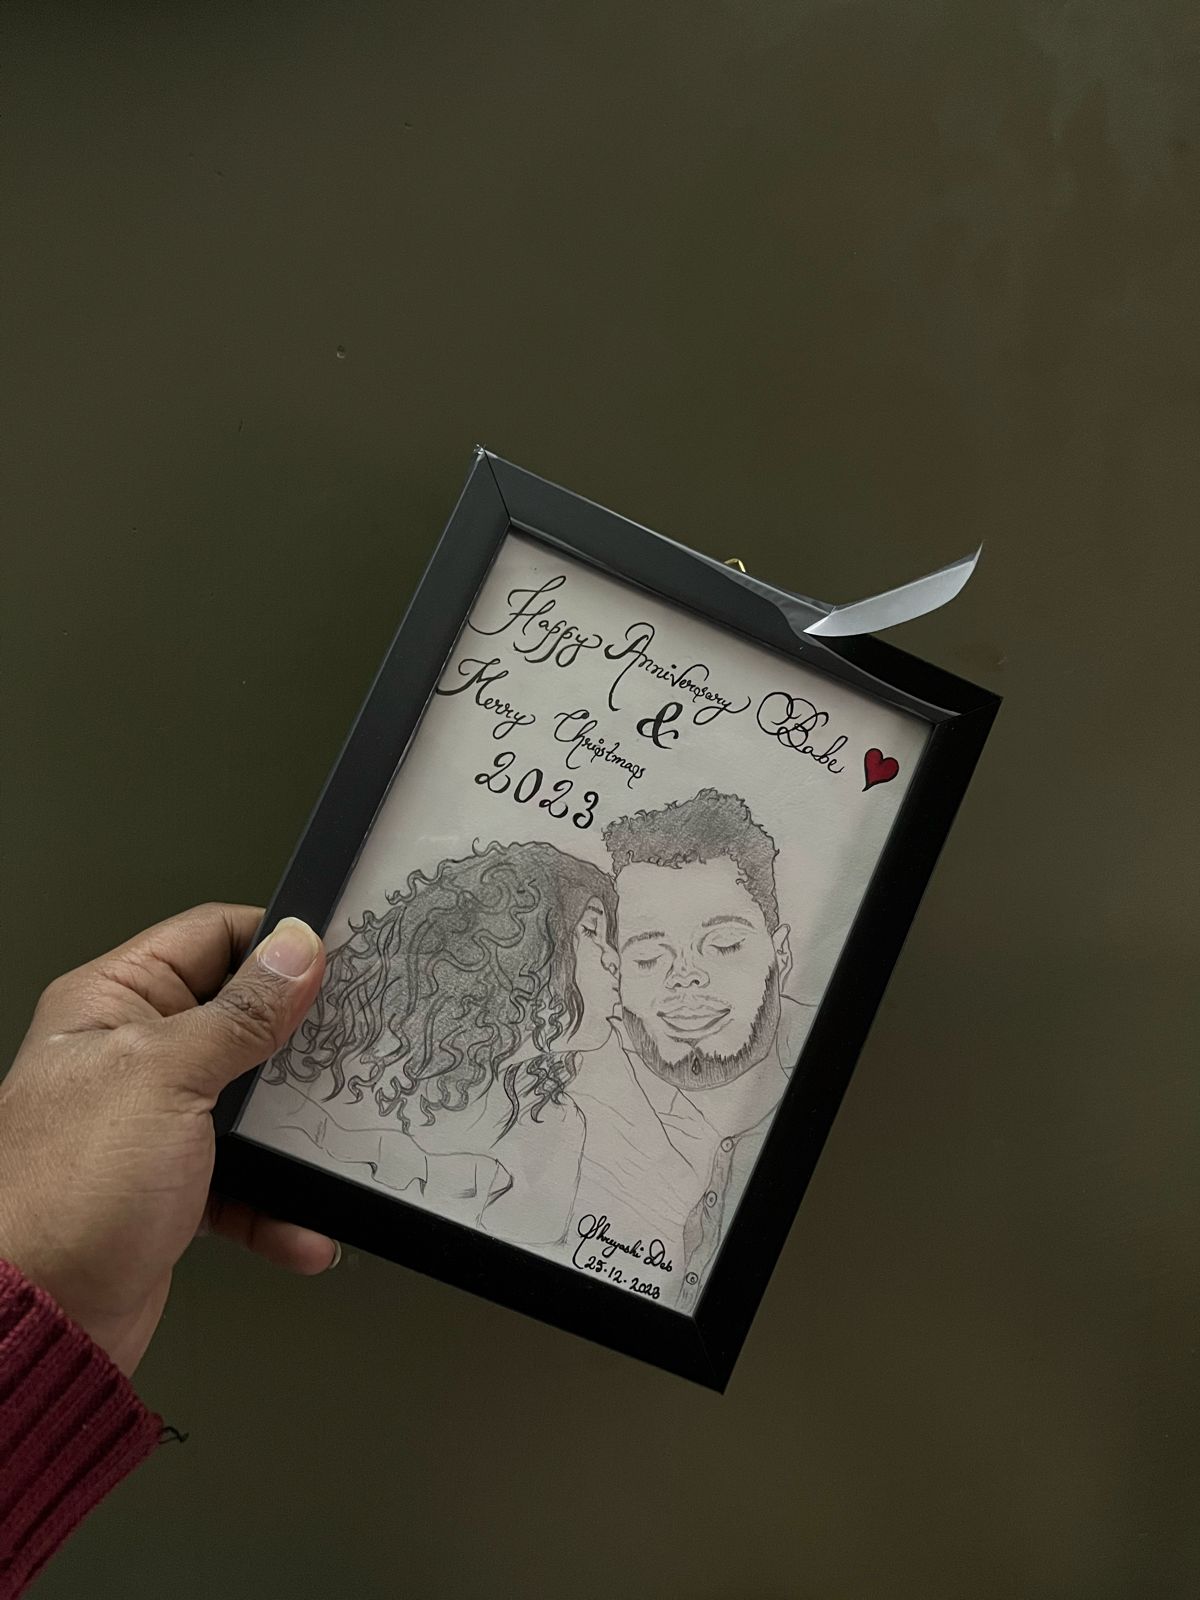 Happy Anniversary Babe
&
Merry Christmas
2023
Shreyashi Deb
25.12.2023